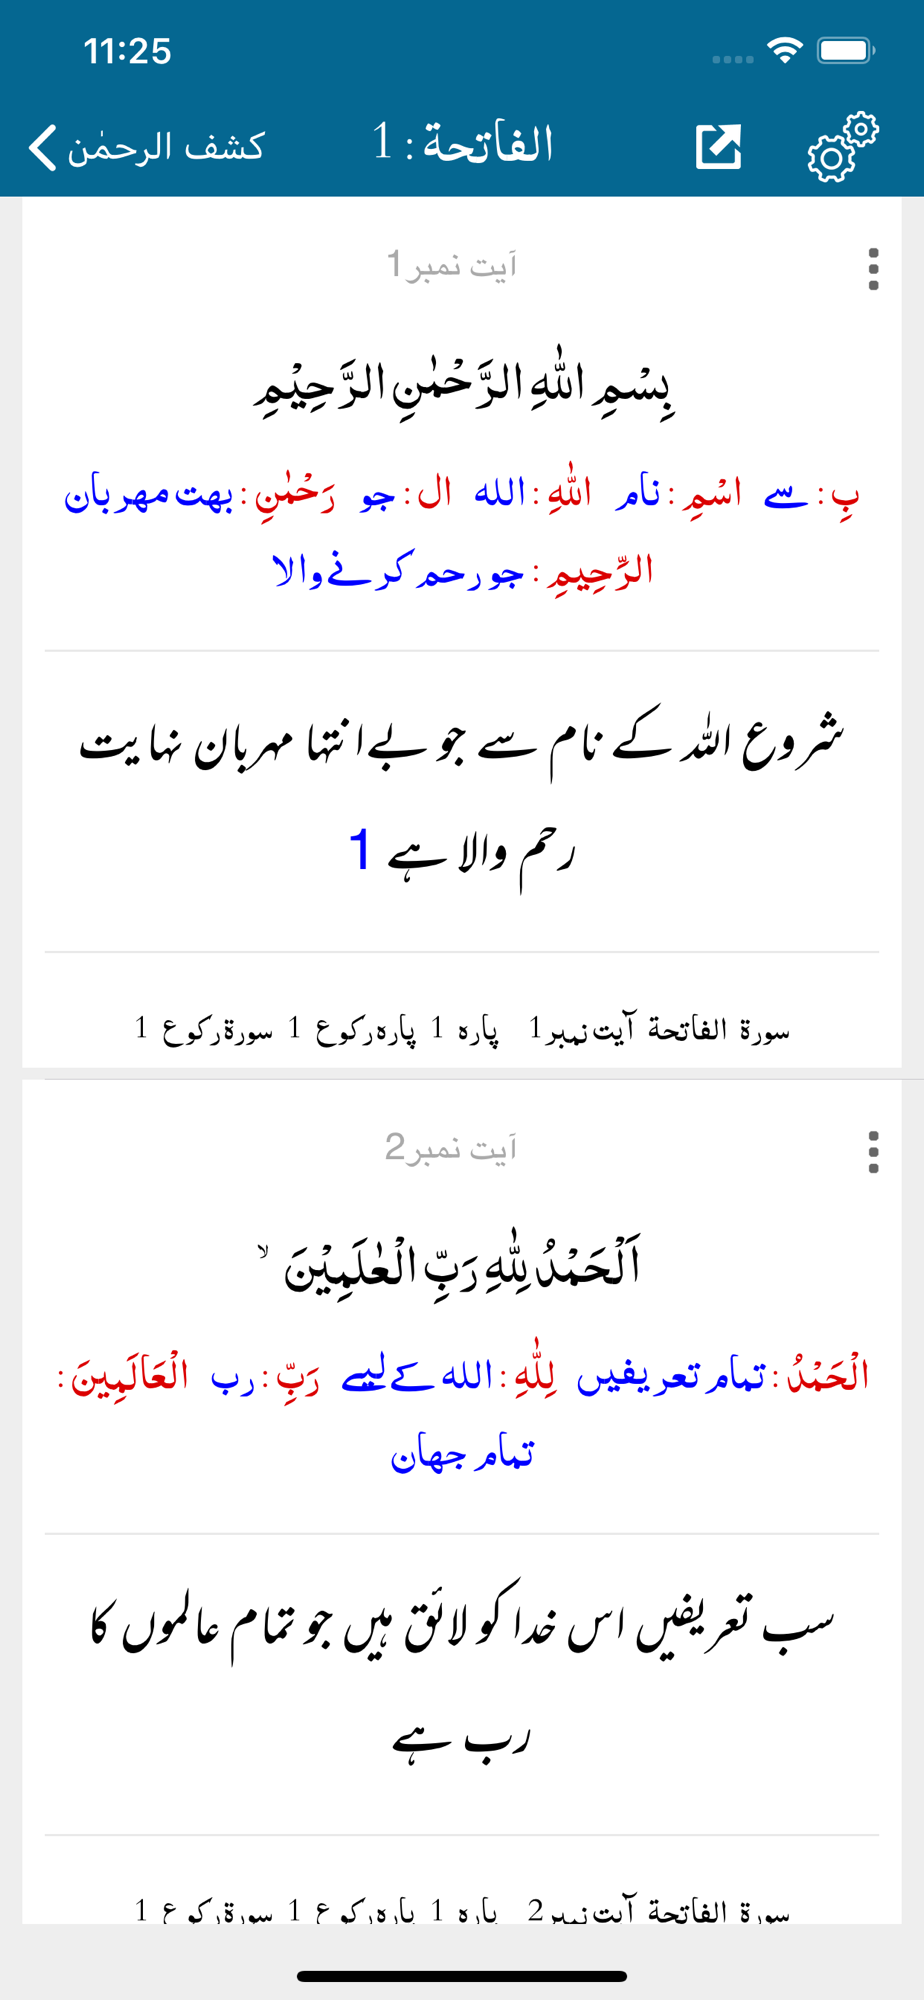 11:25
کشف الرحمٰن
الفاتحة : 1
آیت نمبر1
بِسْمِ اللّٰهِ الرَّحْمٰنِ الرَّحِيْمِ
بِ : سے اسْمِ : نام اللّٰهِ : الله ال : جو رَحْمٰنِ : بهت مهربان
الرَّحِيمِ : جو رحم کرنے والا
شروع اللہ کے نام سے جو بے انتہا مہربان نہایت
رحم والا ہے 1
سورة الفاتحة آیت نمبر1 پاره 1 پاره رکوع 1 سورة رکوع 1
آیت نمبر2
اَلْحَمْدُ لِلّٰهِ رَبِّ الْعٰلَمِيْنَ ۙ
الْحَمْدُ : تمام تعریفیں لِلّٰهِ : الله کے لیے رَبِّ : رب الْعَالَمِينَ :
تمام جهان
سب تعریفیں اس خدا کو لائق ہیں جو تمام عالموں کا
رب ہے
سورة الفاتحة آیت نمبر2 پاره 1 پاره رکوع 1 سورة رکوع 1